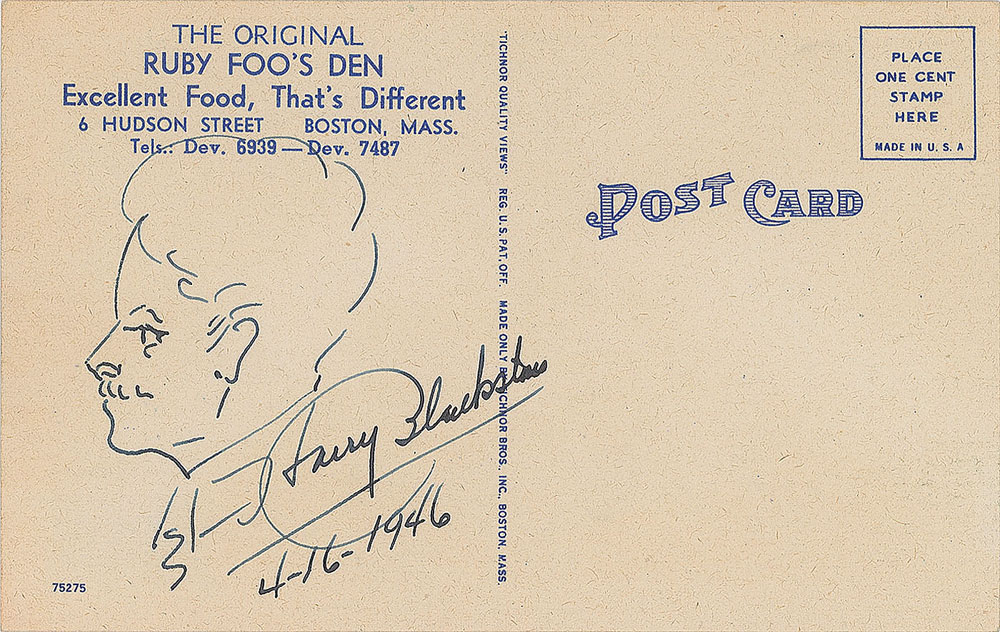 THE ORIGINAL
RUBY FOO'S DEN
Excellent Food, That's Different
6 HUDSON STREET BOSTON, MASS.
Tels.: Dev. 6939 — Dev. 7487
Harry Blackstone
4-16-1946
75275
"TICHNOR QUALITY VIEWS" REG. U.S. PAT. OFF. MADE ONLY BY TICHNOR BROS., INC., BOSTON, MASS.
POST CARD
PLACE
ONE CENT
STAMP
HERE
MADE IN U. S. A